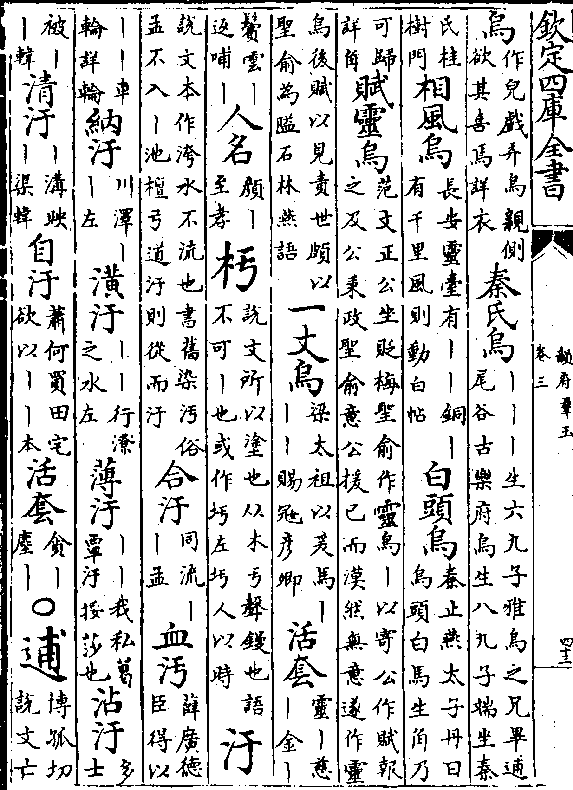 欽定四庫全書
韻府羣玉
卷三
四十三
烏
作兒戲弄烏親側
欲其喜焉詳衣
秦氏烏
｜｜｜生六九子雅烏之兄畢逋
尾谷古樂府烏生八九子端坐秦
氏桂
樹門
相風烏
長安靈臺有｜｜銅｜
有千里風則動白帖
白頭烏
秦止燕太子丹曰
烏頭白馬生角乃
可歸
詳角
賦靈烏
范文正公坐貶梅聖俞作靈烏｜以寄公作賦報
之及公秉政聖俞意公援已而漠然無意遂作靈
烏後賦以見責世頗以
聖俞為隘石林燕語
一丈烏
梁太祖以芙馬｜
｜｜賜冦彥卿
活套
靈｜慈
｜金｜
鬢雲｜
返哺｜
人名
顏｜
至孝
杇
説文所以塗也从木亏聲鏝也語
不可｜也或作圬左圬人以時
汙
説文本作洿水不流也書舊染汚俗
孟不入｜池檀弓道汙則從而汙
合汙
同流｜
｜孟
血汚
薛廣德
臣得以
｜｜車
輪詳輪
納汙
川澤｜
｜左
潢汙
｜｜行潦
之水左
薄汙
｜｜我私葛
覃汙挼莎也
沾汙
多
士
被｜
｜韓
清汙
｜溝映
｜渠韓
自汙
蕭何買田宅
欲以｜｜本
活套
貪｜
塵｜
○逋
博孤切
説文亡